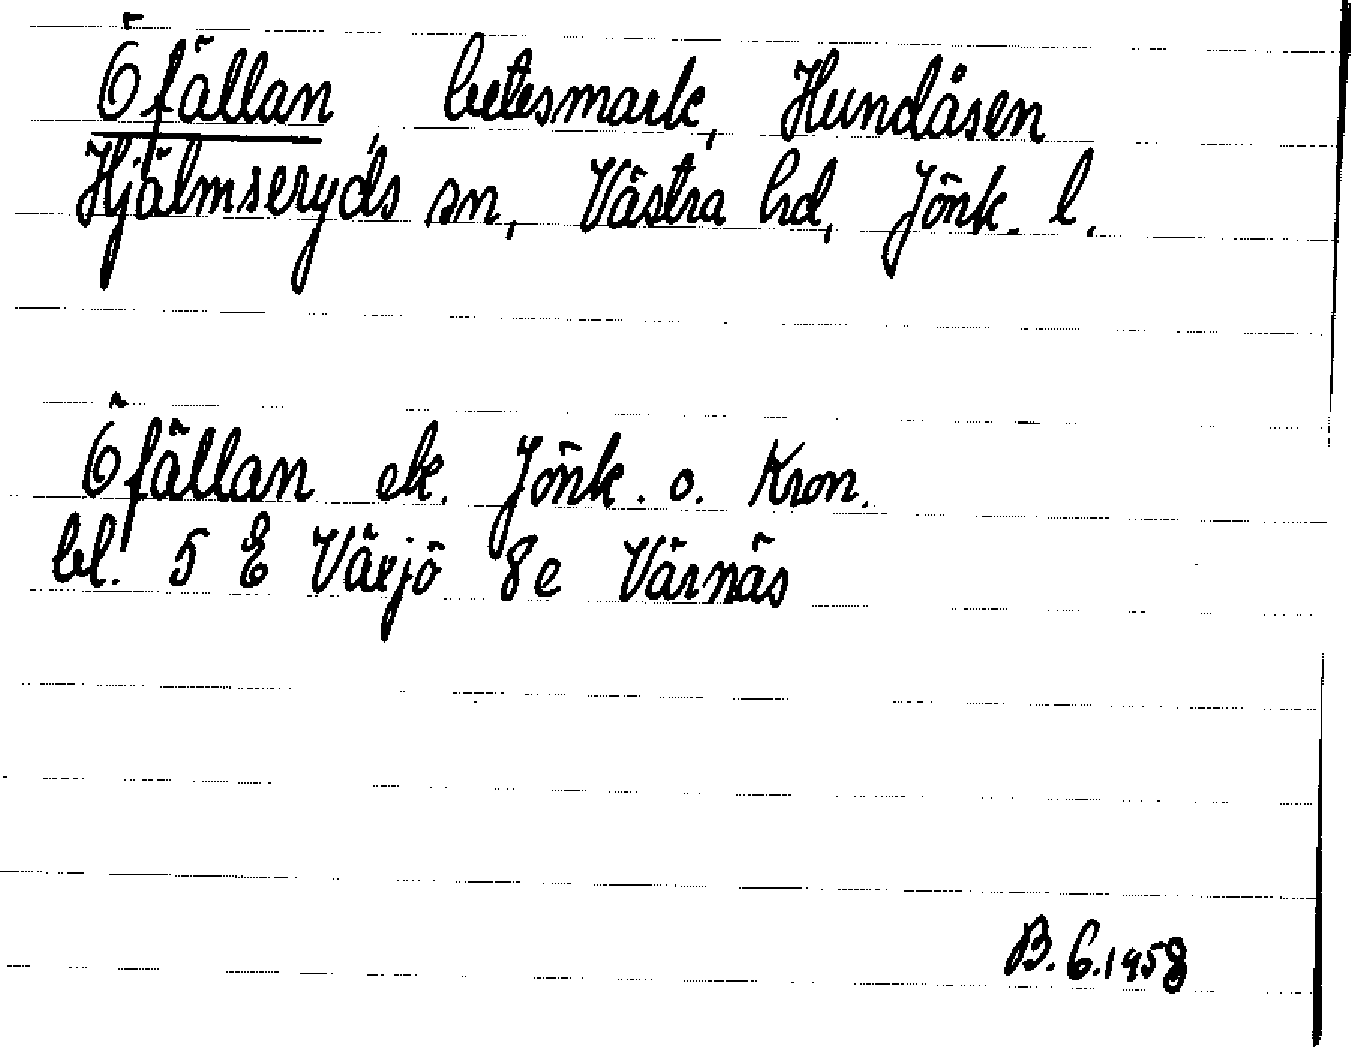 Öfällan, betesmark, Hundåsen
Hjälmseryds sn, Västra hd, Jönk. l.
Öfällan ek. Jönk. o. Kron.
bl. 5 E Växjö 8e Värnäs
B. G. 1958